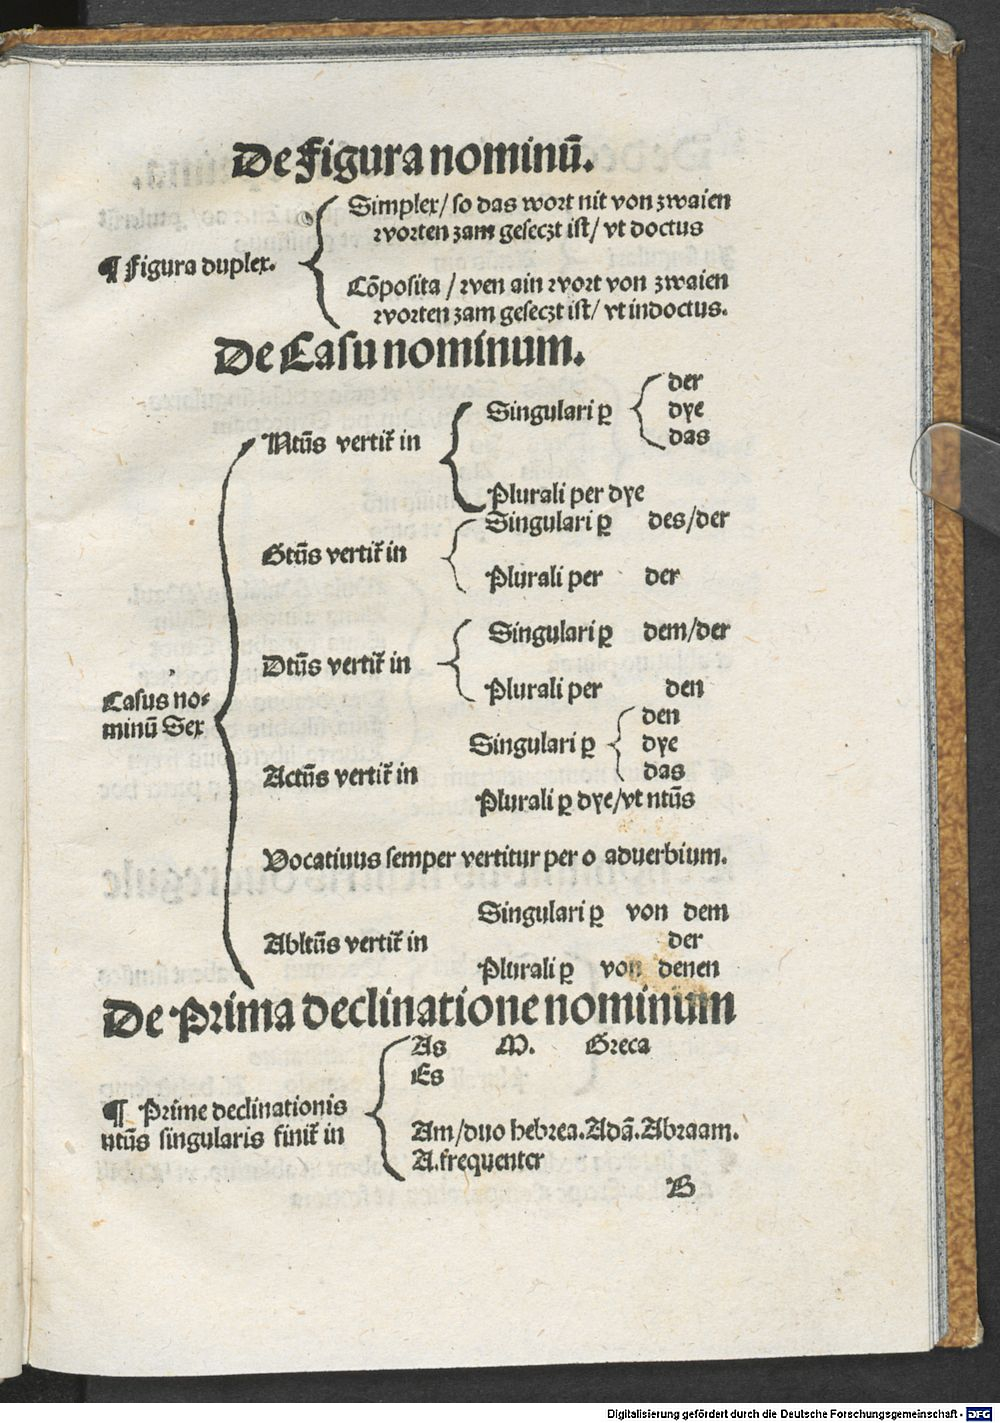 De figura nominū.
Simplex/ so das wort nit von zwaien
worten zam geseczt ist/ vt doctus
¶ Figura duplex.
Cōposita / wen ain wort von zwaien
worten zam geseczt ist/ vt indoctus.
De Casu nominum.
der
Singulari ꝑ dye
das
Ntūs vertit̃ in
Plurali per dye
Singulari ꝑ des/der
Gtūs vertit̃ in
Plurali per der
Singulari ꝑ dem/der
Dtūs vertit̃ in
Plurali per den
Casus no⸗
minū Sex
den
Singulari ꝑ dye
das
Actūs vertit̃ in
Plurali ꝑ dye/vt ntūs
Vocatiuus semper vertitur per o aduerbium.
Singulari ꝑ von dem
Abltūs vertit̃ in der
Plurali ꝑ von denen
De Prima declinatione nominium
As M. Greca
Es
¶ Prime declinationis
ntūs singularis finit̃ in
Am/duo hebrea.Adā.Abraam.
A.frequenter
B
Digitalisierung gefördert durch die Deutsche Forschungsgemeinschaft - DFG